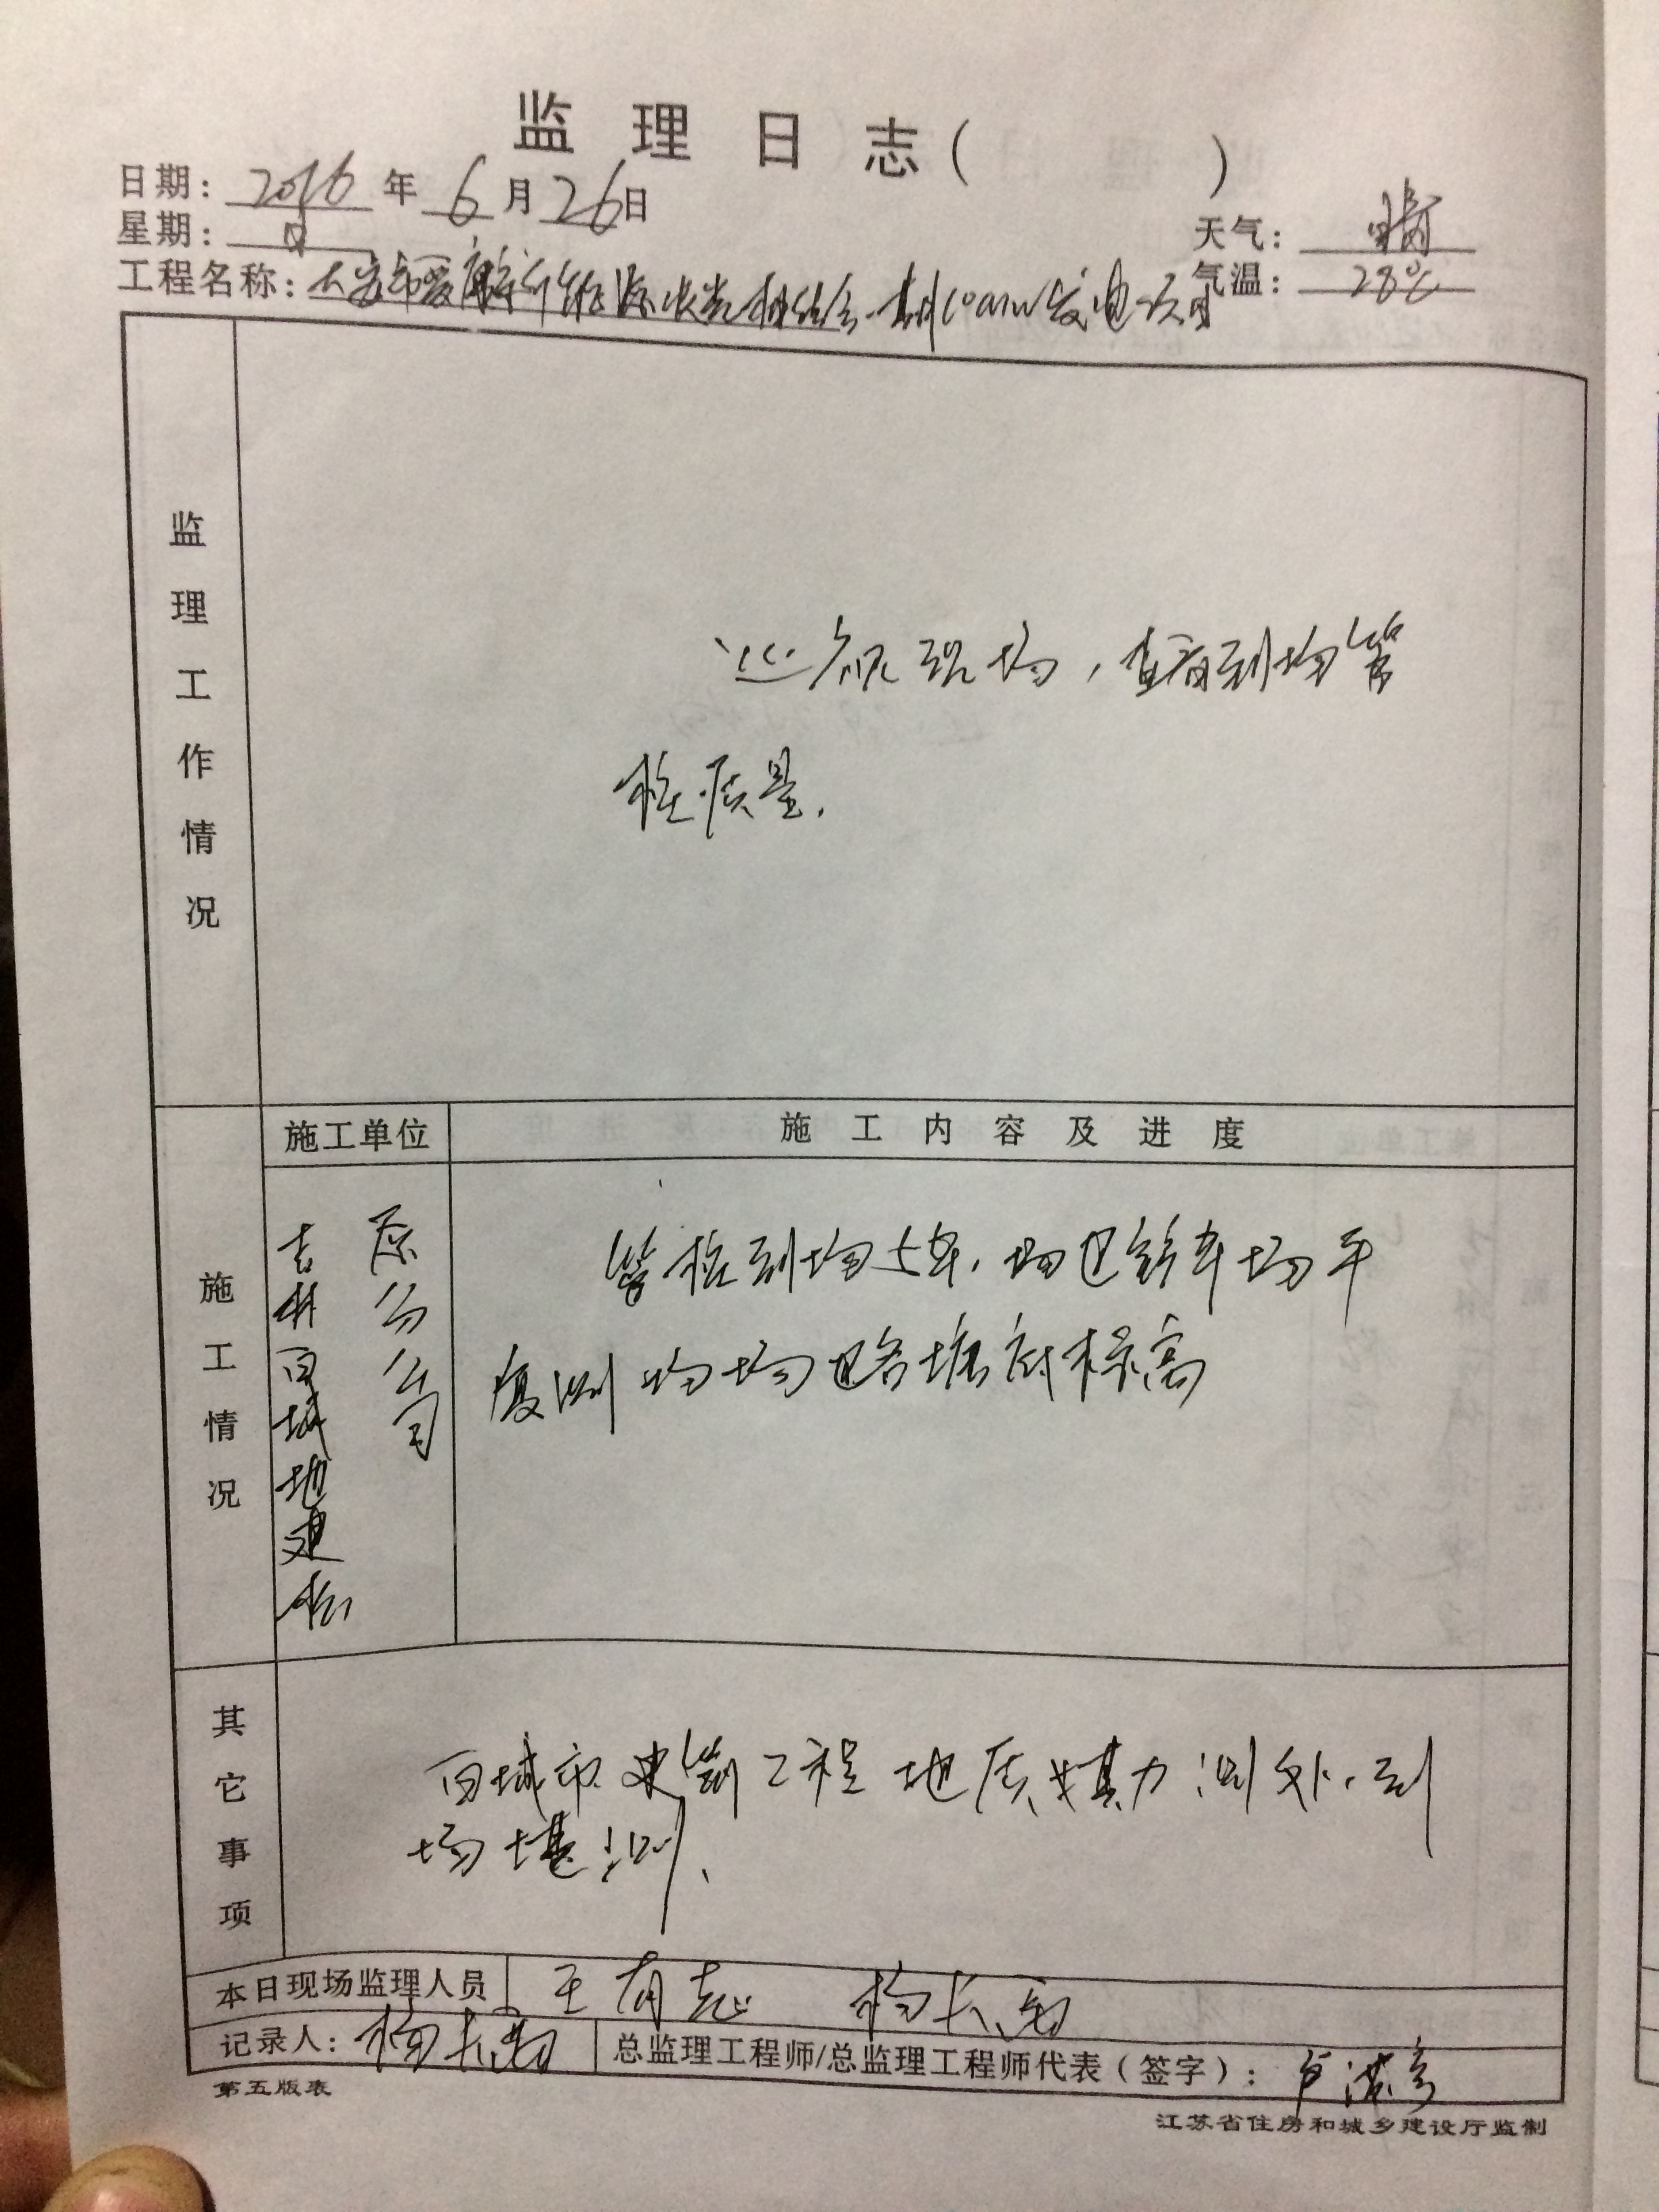 监理日志（ ）
日期：2016年6月26日
星期：日
天气：晴
工程名称：大安市爱康新能源农光相结合一期10MW发电项目
气温：28℃
监理工作情况
巡视现场，查看到场管
桩质量.
施工单位
施工内容及进度
施工情况
吉林百城地建松
原分公司
管桩到场5车，场区 车场平
复测 场 路塘 标高
其它事项
百城市建筑工程地质 测处，到
场堪测、
本日现场监理人员
王有志 杨长
记录人：杨长
总监理工程师/总监理工程师代表（签字）：卢
第五版表
江苏省住房和城乡建设厅监制